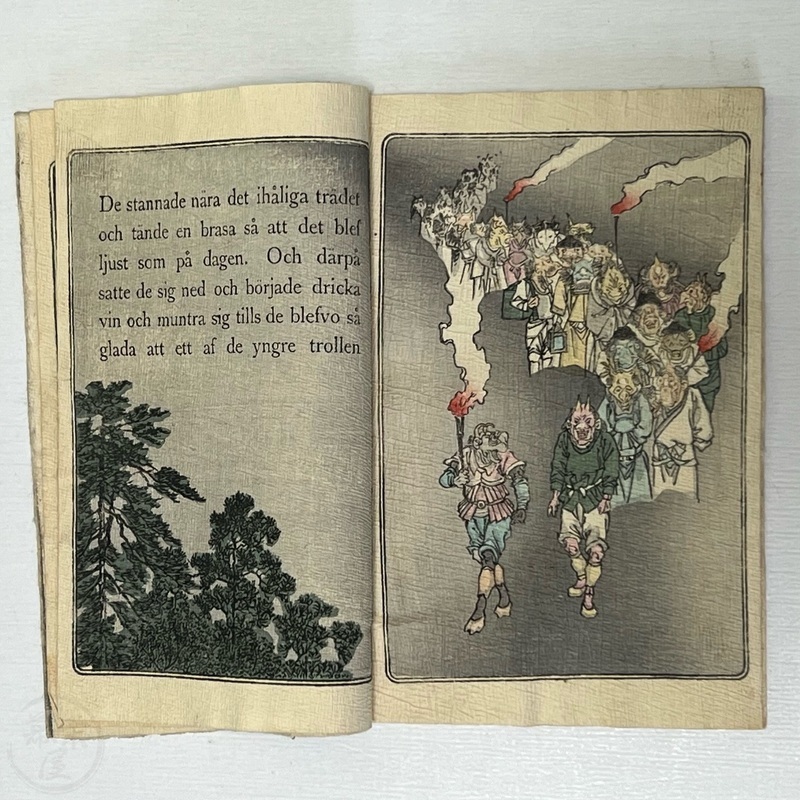 De stannade nära det ihåliga trädet
och tände en brasa så att det blef
ljust som på dagen. Och därpå
satte de sig ned och började dricka
vin och muntra sig tills de blefvo så
glada att ett af de yngre trollen